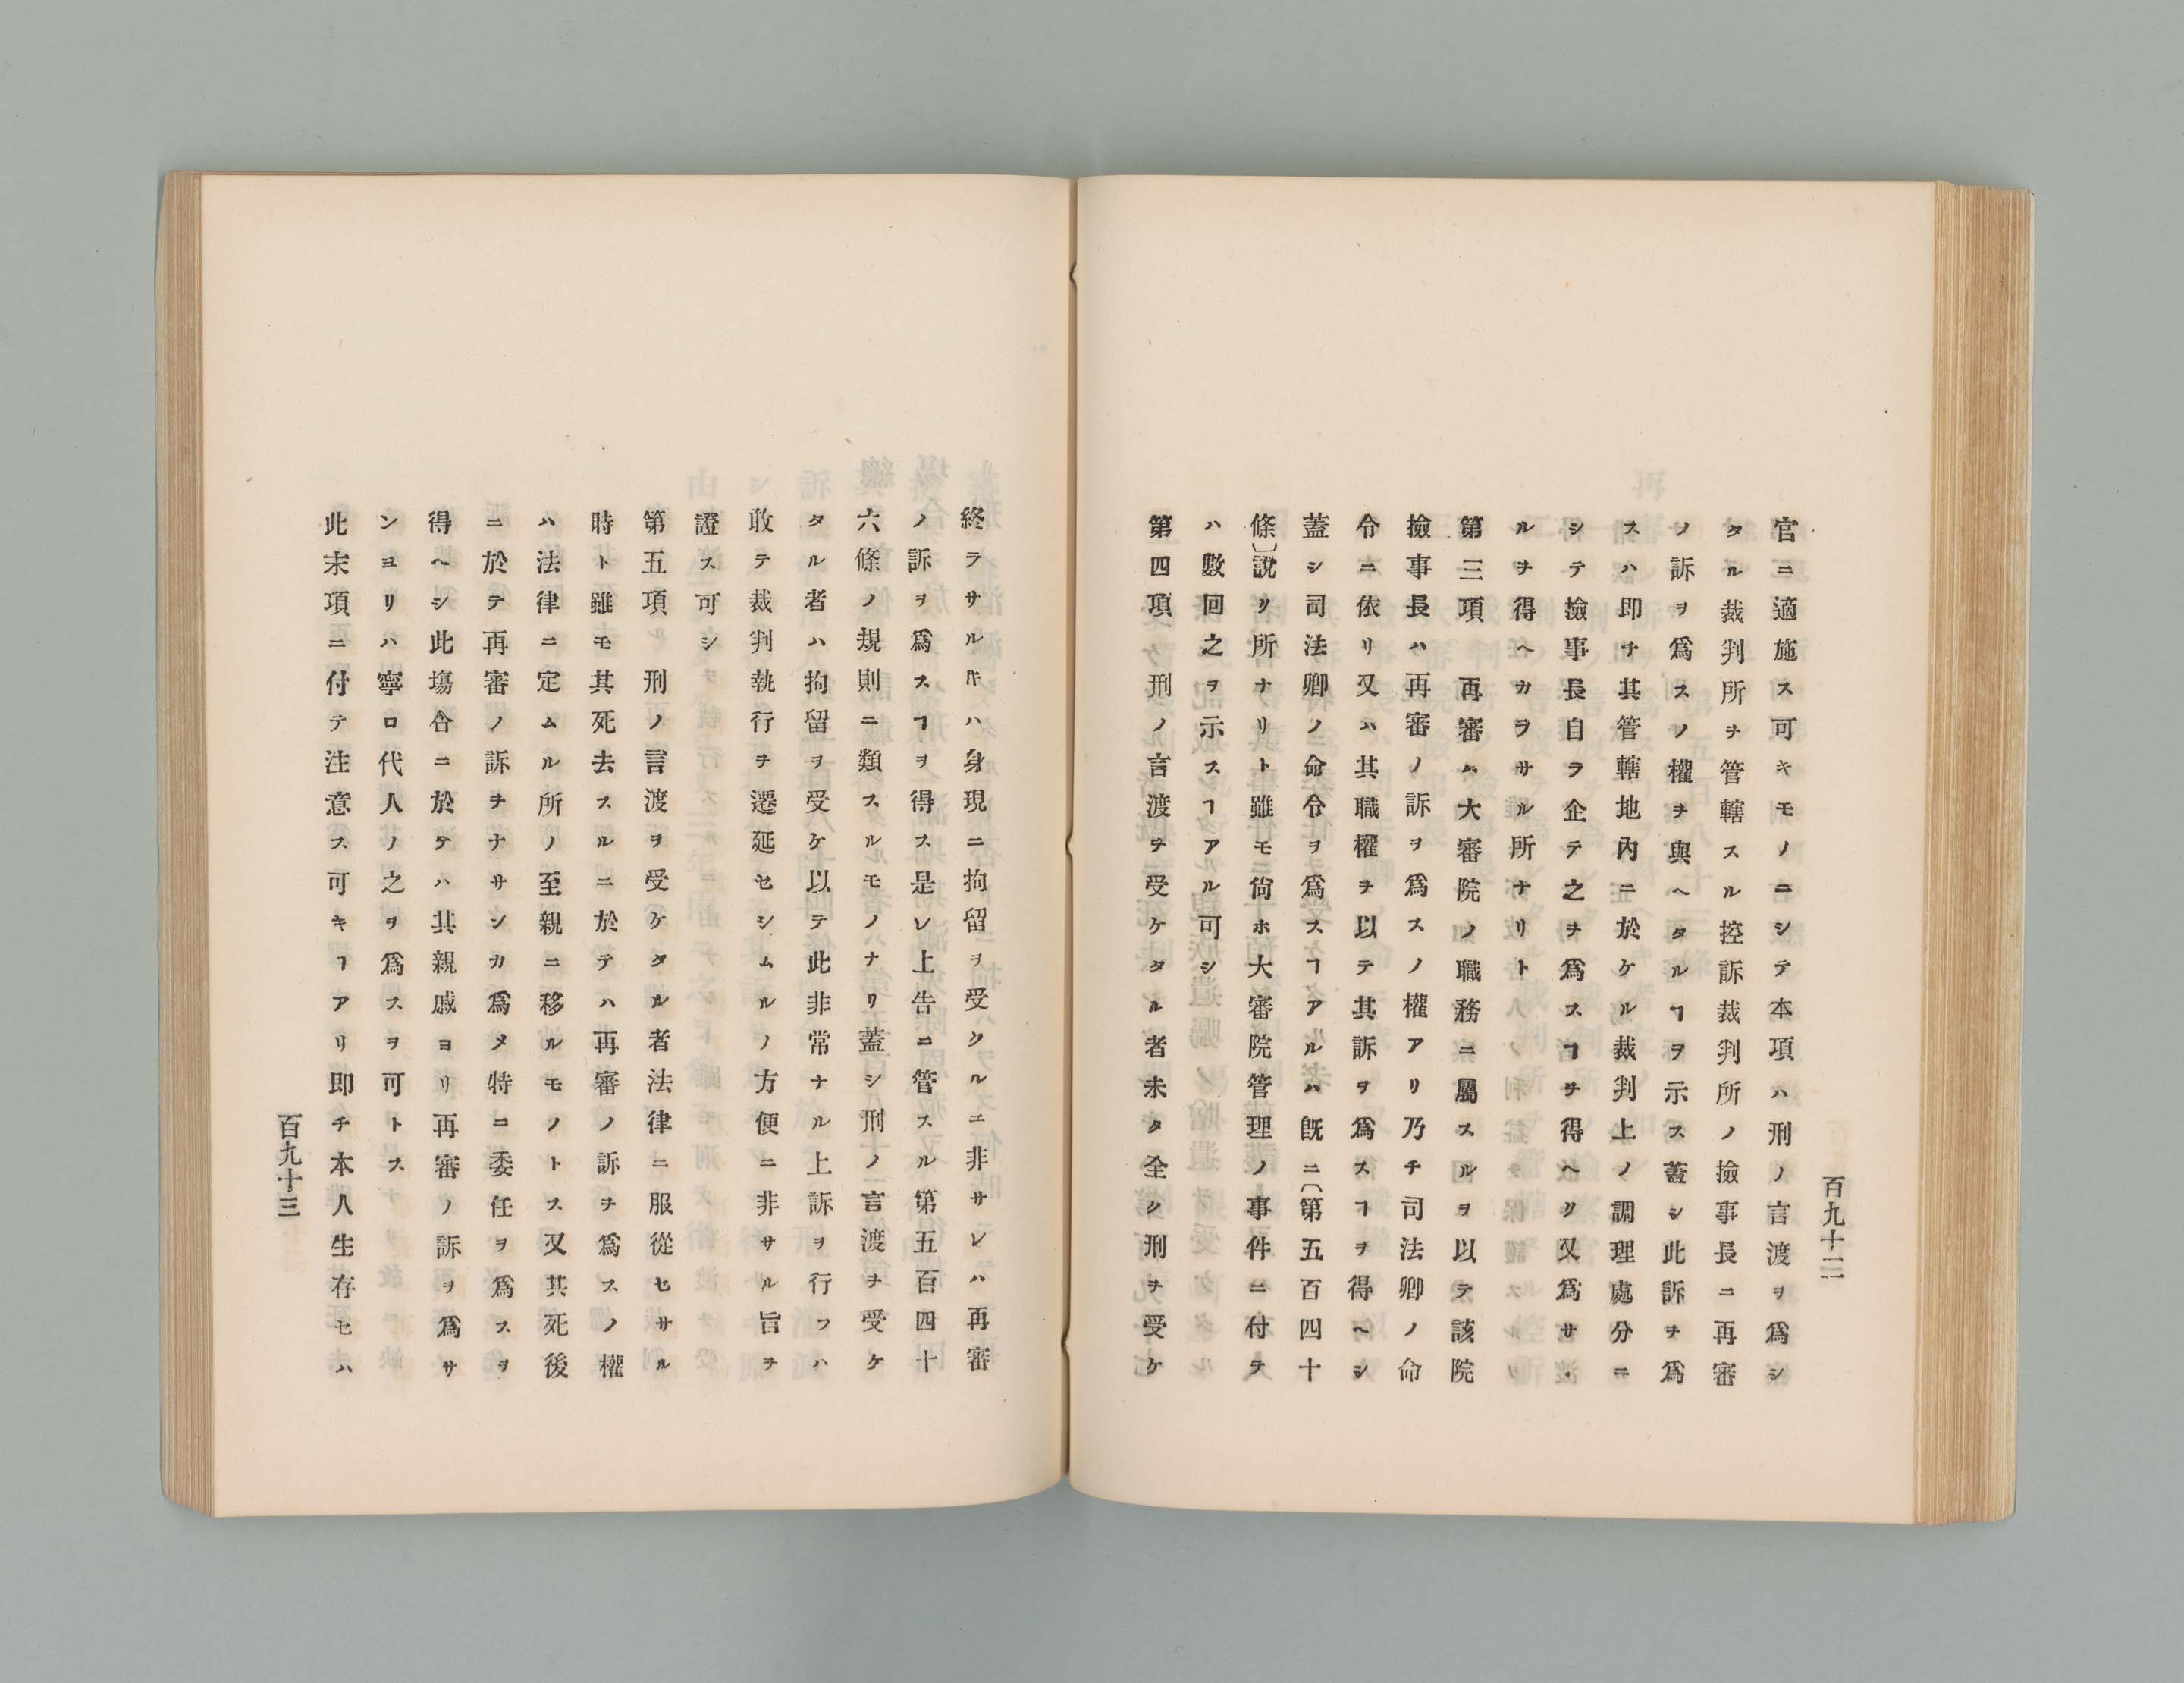 官ニ適施ス可キモノニシテ本項ハ刑ノ言渡ヲ爲シ
タル裁判所ヲ管轄スル控訴裁判所ノ撿事長ニ再審
ノ訴ヲ爲スノ權ヲ與ヘタルヿヲ示ス蓋シ此訴ヲ爲
スハ即チ其管轄地內ニ於ケル裁判上ノ調理處分ニ
シテ撿事長自ラ企テ之ヲ爲スヿヲ得ヘク又爲サヽ
ルヲ得ヘカラサル所ナリト
第三項 再審ハ大審院ノ職務ニ屬スルヲ以テ該院
撿事長ハ再審ノ訴ヲ爲スノ權アリ乃チ司法卿ノ命
令ニ依リ又ハ其職權ヲ以テ其訴ヲ爲スヿヲ得ヘシ
蓋シ司法卿ノ命令ヲ爲スヿアルハ旣ニ〔第五百四十
條〕說ク所ナリト雖モ尙ホ大審院管理ノ事件ニ付テ
ハ數回之ヲ示スヿアル可シ
第四項 刑ノ言渡ヲ受ケタル者未タ全ク刑ヲ受ケ
百九十二
終ラサル𪜈ハ身現ニ拘留ヲ受クルニ非サレハ再審
ノ訴ヲ爲スヿヲ得ス是レ上告ニ管スル第五百四十
六條ノ規則ニ類スルモノナリ蓋シ刑ノ言渡ヲ受ケ
タル者ハ拘留ヲ受ケ以テ此非常ナル上訴ヲ行フハ
敢テ裁判執行ヲ遷延セシムルノ方便ニ非サル旨ヲ
證ス可シ
第五項 刑ノ言渡ヲ受ケタル者法律ニ服從セサル
時ト雖モ其死去スルニ於テハ再審ノ訴ヲ爲スノ權
ハ法律ニ定ムル所ノ至親ニ移ルモノトス又其死後
ニ於テ再審ノ訴ヲナサンカ爲メ特ニ委任ヲ爲スヲ
得ヘシ此塲合ニ於テハ其親戚ヨリ再審ノ訴ヲ爲サ
ンヨリハ寧ロ代人ノ之ヲ爲スヲ可トス
此末項ニ付テ注意ス可キヿアリ即チ本人生存セハ
百九十三